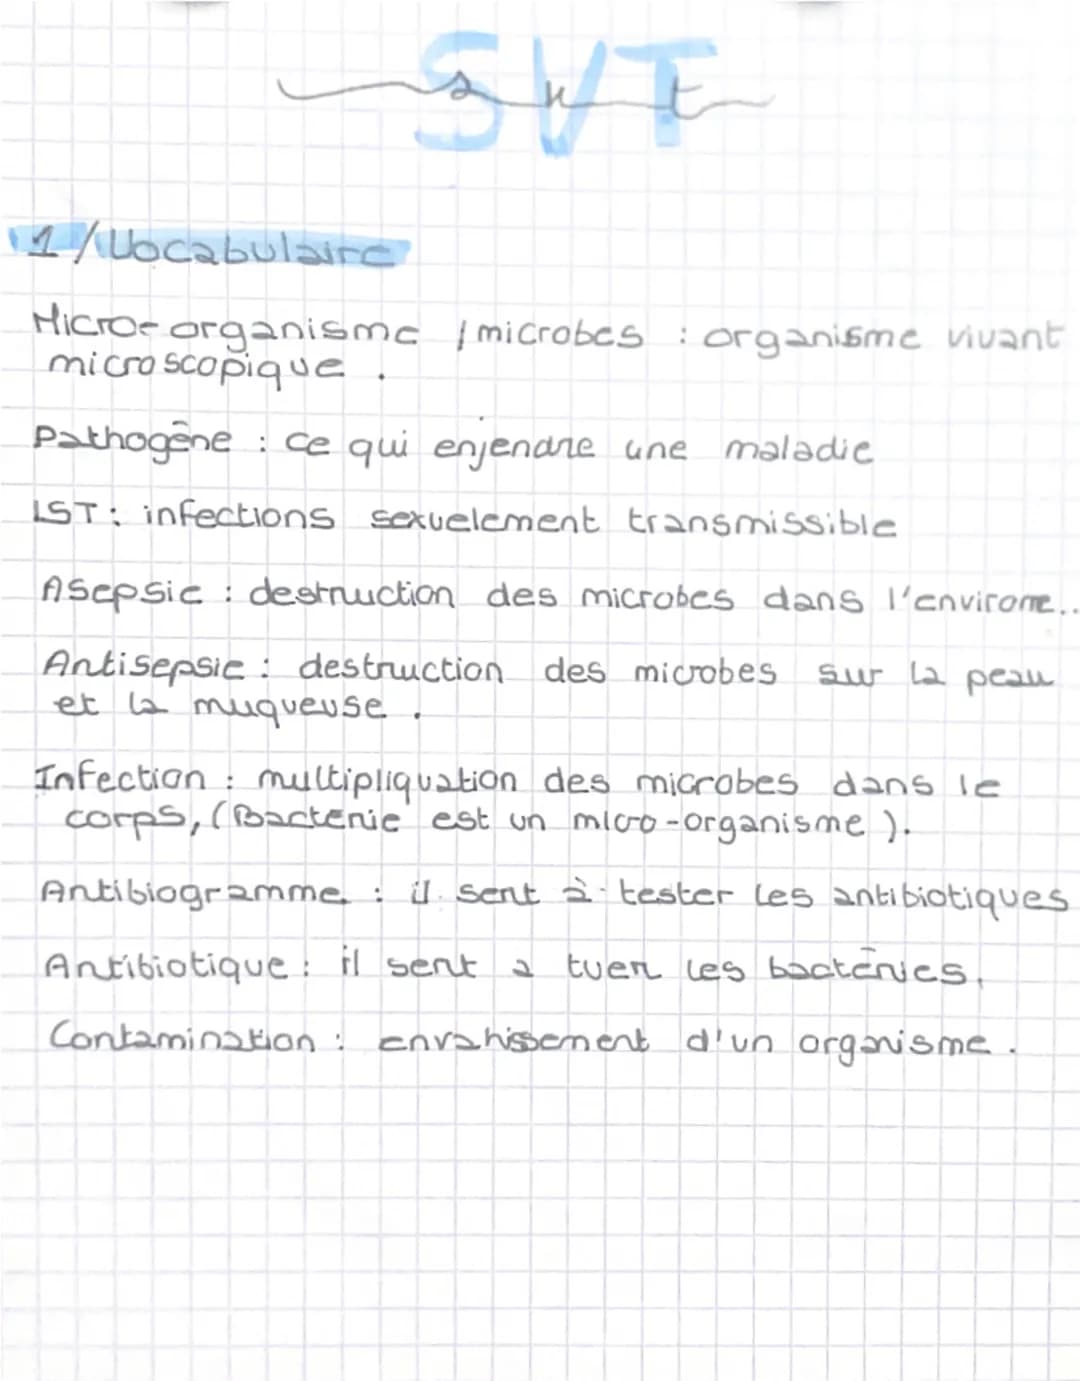 SVT
svt
1/Vocabulaire
Micro-organisme / microbes : organisme vivant
microscopique .
Pathogêne : ce qui enjendre une maladie
IST : infections sexuelement transmissible
Asepsie : destruction des microbes dans l'environne..
Antisepsie : destruction des microbes sur la peau
et la muqueuse .
Infection : multipliquation des microbes dans le
corps, (Bacterie est un micro-organisme ).
Antibiogramme : il sert à tester les antibiotiques
Antibiotique : il sert a tuer les bactéries.
Contamination : envahissement d'un organisme .